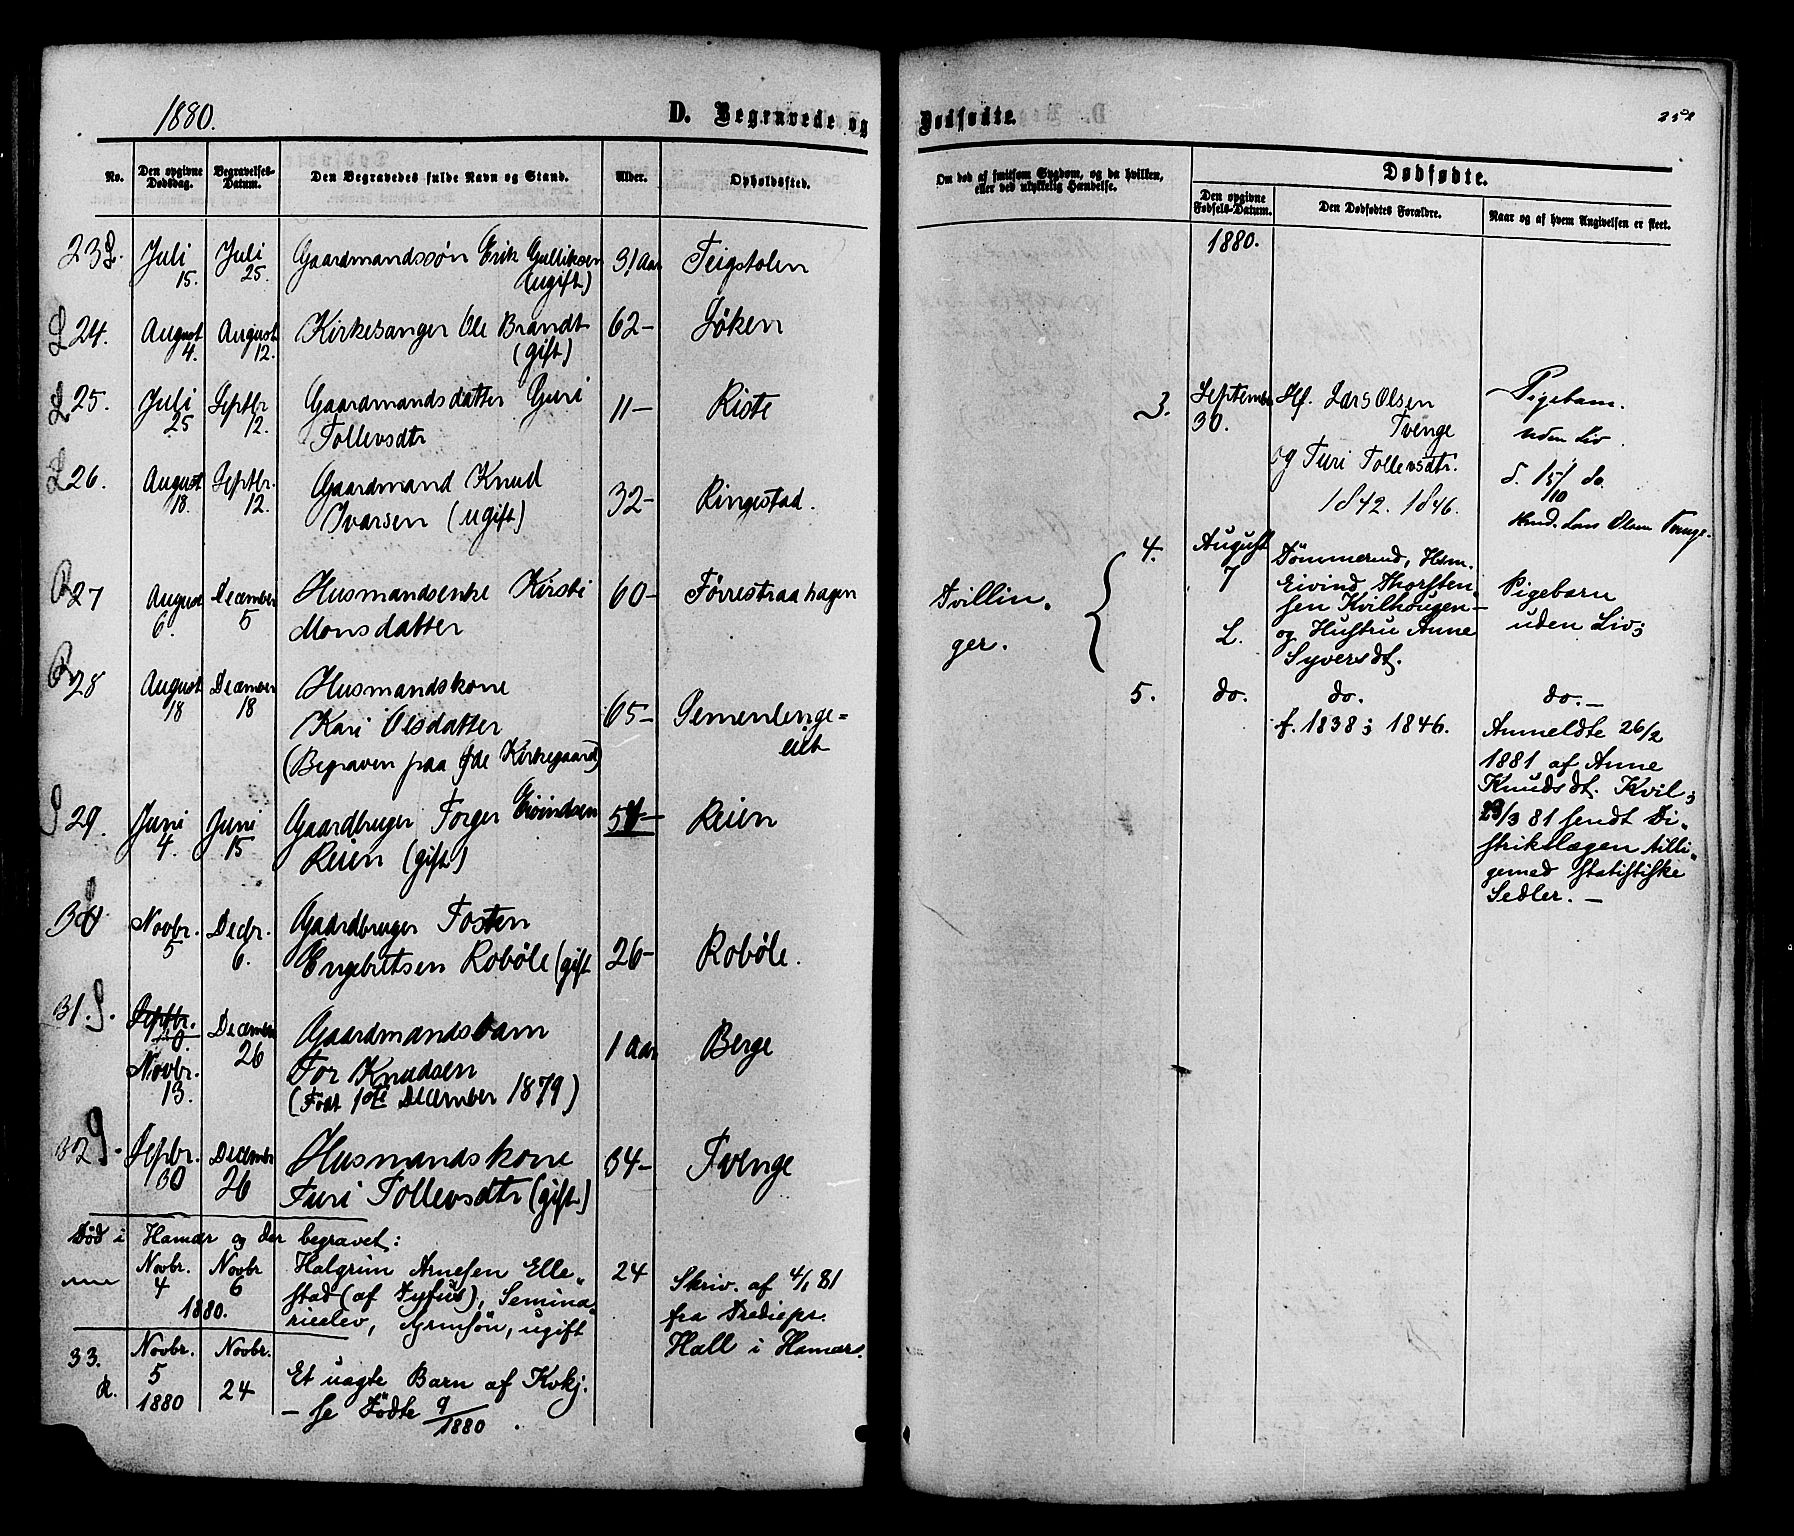 1880.
D. Begravede og
No.
Den opgivne Dødsdag.
Begravelses-Datum.
Den Begravedes fulde Navn og Stand.
Alder.
Opholdssted.
23 L. Juli 15. Juli 25. Gaardmandssøn Erik Gulliksen 31 aar Feigstolen
(ugift)
L 24. August 4. August 12. Kirkesanger Ole Brandt 62- Løken
(gift)
L 25. Juli 25 Septbr. 12. Gaardmandsdatter Guri 11- Riste
Tollevsdtr
L 26. August 18. Septbr. 12. Gaardmand Knud 32- Ringestad.
Ivarsen (ugift)
R 27 August 6. December 5 Husmandsenke Kirsti 60- Førrestraahagen
Monsdatter
R 28 August 18 December 18 Husmandskone
Kari Olsdatter 65-
(Begraven paa Kirkegaard)
S 29. Juni 4. Juni 15 Gaardbruger Torger Eivindsen Reien
Reien (gift)
30 Novbr. 5 Decbr. 6. Gaardbruger Tosten
Engebritsen Robøle (gift 26- Robøle.
31. S. Septbr. Novbr. 13. December 26 Gaardmandsbarn 1 aar Berge
Tor Knudsen
(Født 1ste December 1879)
32 S. Sepbr. 30 December 26 Husmandskone 34- Tvenge
Turi Tollevsdtr (gift)
Død i Hamar og der begravet:
Novbr. 4 Novbr 6 Halgrim Arnesen Elle- 24 Skriv. af 4/1 81
1880. stad (af Tyfus), Semina- fra
rieelev, ugift Hall i Hamar.
33. R. Novbr. 5 1880 Novbr. 24 Et uægte Barn af Kvkj.
- se Fødte 9/1880.
Dødfødte.
252
Om død af smitsom Sygdom, og da hvilken,
eller ved ulykkelig Hændelse.
Dødfødte.
Den opgivne Fødsels-Datum.
Den Dødfødtes Forældre.
Naar og af hvem Angivelsen er skeet.
1880.
3. September 30. Hf. Lars Olsen Pigebarn.
Tvenge uden Liv.
og Turi Tollevsdtr. d. 15/10 do.
1842. 1846. Lars Olsen Tvenge.
Tvillin-
ger.
4. August 7 L. Tømmermd, Hsm.
Eivind Thorsten-
sen Kvilhougen- Pigebarn
og Hustru Anne uden Liv;
Syversdt.
5. do. do. do.-
f. 1838; 1846. Anmeldte 26/2
1881 af Anne
Knudsdt. Kvil;
/3 81 sendt Di-
strikslægen tilli-
gemed statistiske
Sedler. -